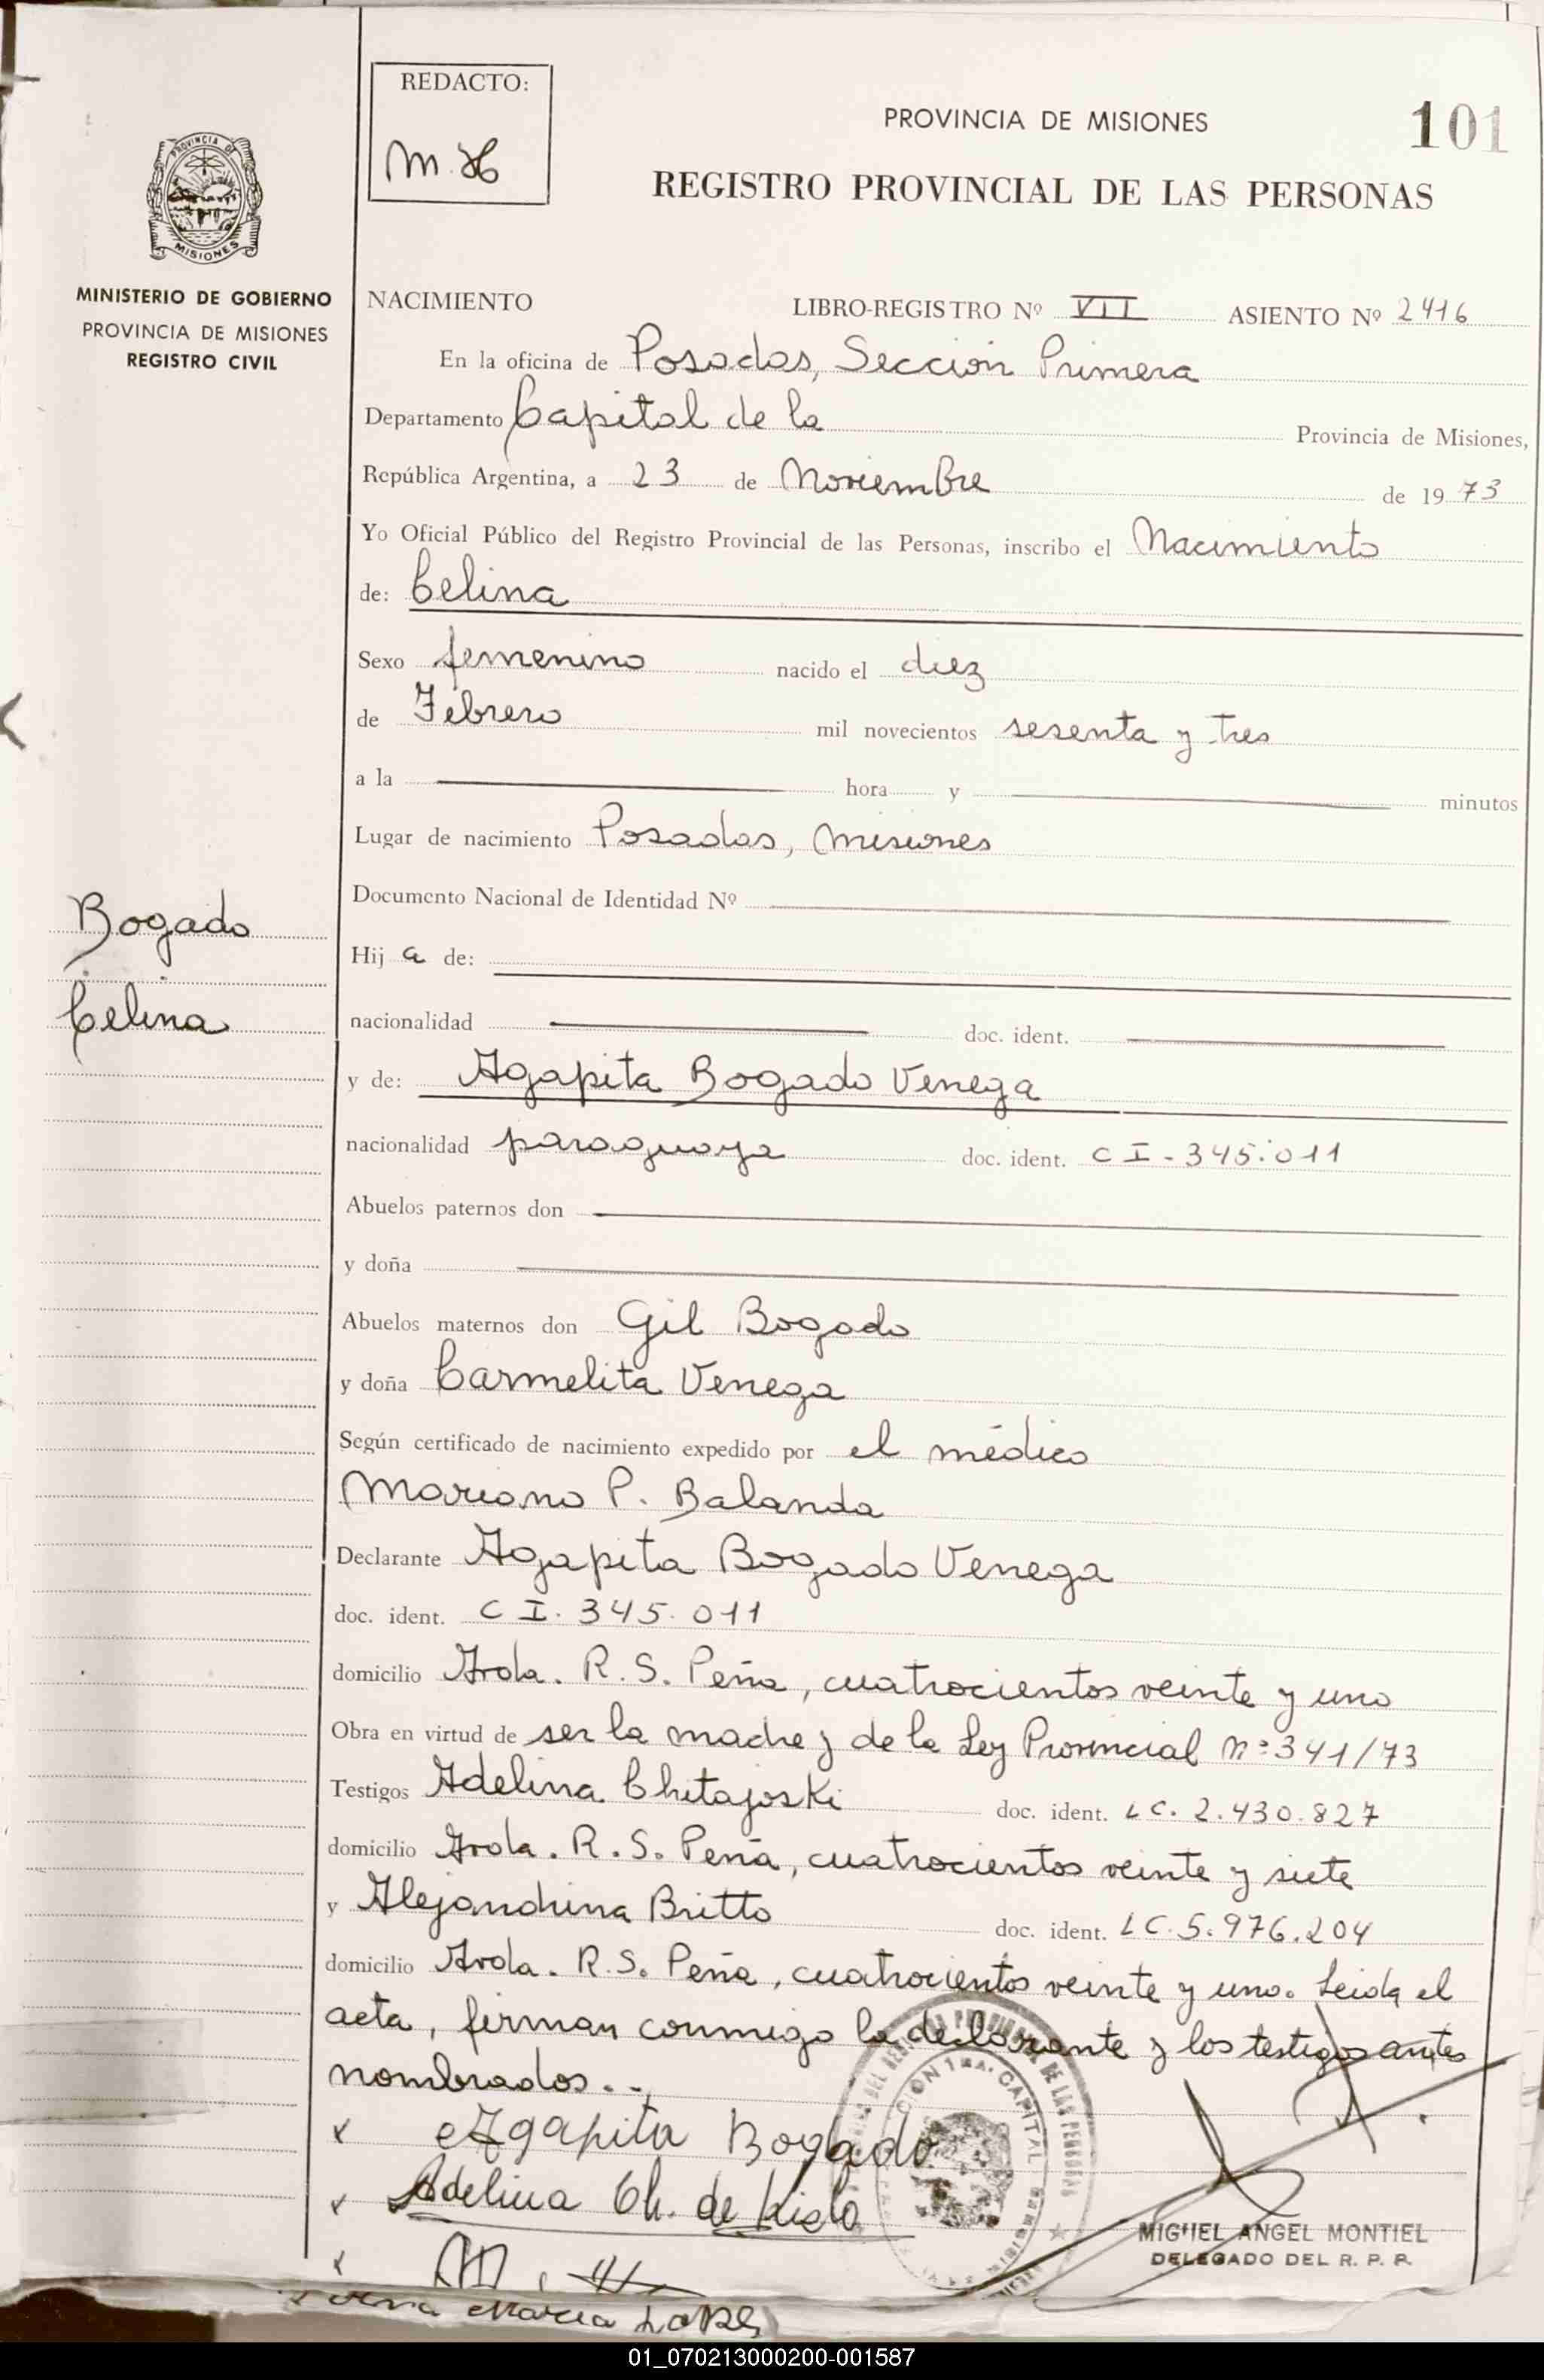 REDACTO:
PROVINCIA DE MISIONES
101
REGISTRO PROVINCIAL DE LAS PERSONAS
PROVINCIA DE
MISIONES
MINISTERIO DE GOBIERNO
PROVINCIA DE MISIONES
REGISTRO CIVIL
NACIMIENTO LIBRO-REGISTRO Nº VII ASIENTO Nº 2416
En la oficina de Posadas, Seccion Primera
Departamento Capital de la Provincia de Misiones,
República Argentina, a 23 de Noviembre de 1973
Yo Oficial Público del Registro Provincial de las Personas, inscribo el Nacimiento
de: Celina
Sexo femenino nacido el diez
de Febrero mil novecientos sesenta y tres
a la hora y minutos
Lugar de nacimiento Posadas, Misiones
Documento Nacional de Identidad Nº
Bogado
Hij a de:
Celina
nacionalidad doc. ident.
y de: Agapita Bogado Venega
nacionalidad paraguaya doc. ident. CI-345.011
Abuelos paternos don
y doña
Abuelos maternos don Gil Bogado
y doña Carmelita Venega
Según certificado de nacimiento expedido por el médico
Mariano P. Balanda
Declarante Agapita Bogado Venega
doc. ident. CI. 345.011
domicilio Avda. R. S. Peña, cuatrocientos veinte y uno
Obra en virtud de ser la madre y de la Ley Provincial Nº 341/73
Testigos Adelina Chitajoski doc. ident. LC. 2.430.827
domicilio Avda. R. S. Peña, cuatrocientos veinte y siete
y Alejandrina Britto doc. ident. LC. 5.976.204
domicilio Avda. R. S. Peña, cuatrocientos veinte y uno. Leida el
acta, firman conmigo la declarante y los testigos antes
nombrados.
x Agapita Bogado
x Adelina Ch. de
x
MIGUEL ANGEL MONTIEL
DELEGADO DEL R. P. P.
Maria
01_070213000200-001587